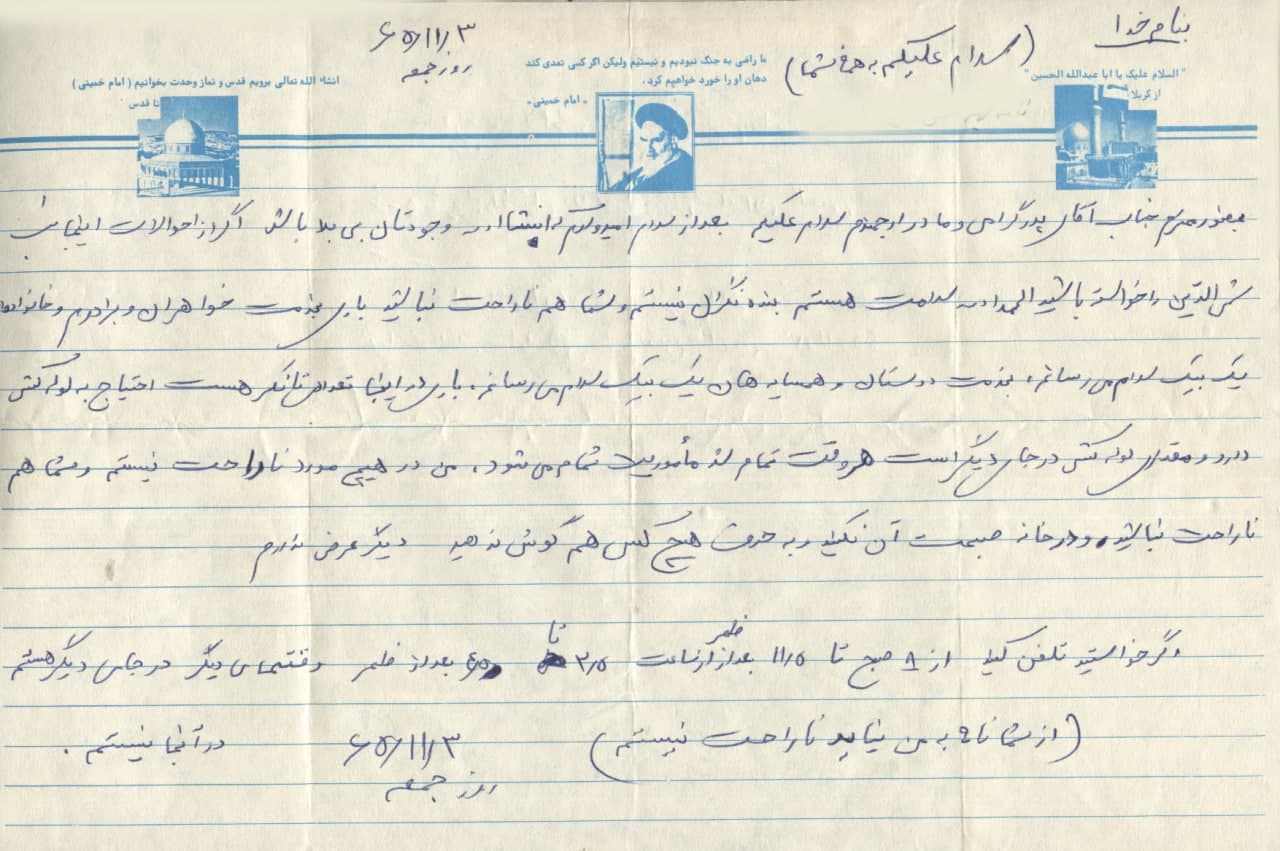 بنام خدا
(سلام علیکم به همۀ شما)
۶۵/۱۱/۳
روز جمعه
"السلام علیک یا ابا عبدالله الحسین"
از کربلا
ما راضی به جنگ نبودیم و نیستیم ولیکن اگر کسی تعدی کند
دهان او را خورد خواهیم کرد.
« امام خمینی »
انشاء الله تعالی برویم قدس و نماز وحدت بخوانیم ( امام خمینی )
تا قدس
جناب آقای پدر گرامی و مادر ارجمندم سلام علیکم بعد از سلام امیدوارم که انشاالله وجودتان بی بلا باشد اگر از احوالات اینجانب
شمس الدین را خواسته باشید الحمدالله سلامت هستم بنده نگران نیستم و شما هم ناراحت نباشید باری بخدمت خواهران و برادرم و خانواده
یک بیک سلام می رسانم، بخدمت دوستان و همسایه هان یک بیک سلام می رسانم، باری در اینجا تعدادی تانکر هست احتیاج به لوله کشی
دارد و مقداری لوله کشی در جای دیگر است هر وقت تمام شد مأموریت تمام می شود، من در هیچ مورد ناراحت نیستم و شما هم
ناراحت نباشید و در خانه صحبت آن نکنید و به حرف هیچ کس هم گوش ندهید دیگر عرضی ندارم
و گر خواستید تلفن کنید از ۸ صبح تا ۱۱/۵ ظهر بعد از از ساعت ۳/۵ تا بعد از ظهر وقتهای دیگر در جای دیگر هستم
(از شما نامه به من نیاید ناراحت نیستم)
در آنجا نیستم.
۶۵/۱۱/۳
روز جمعه